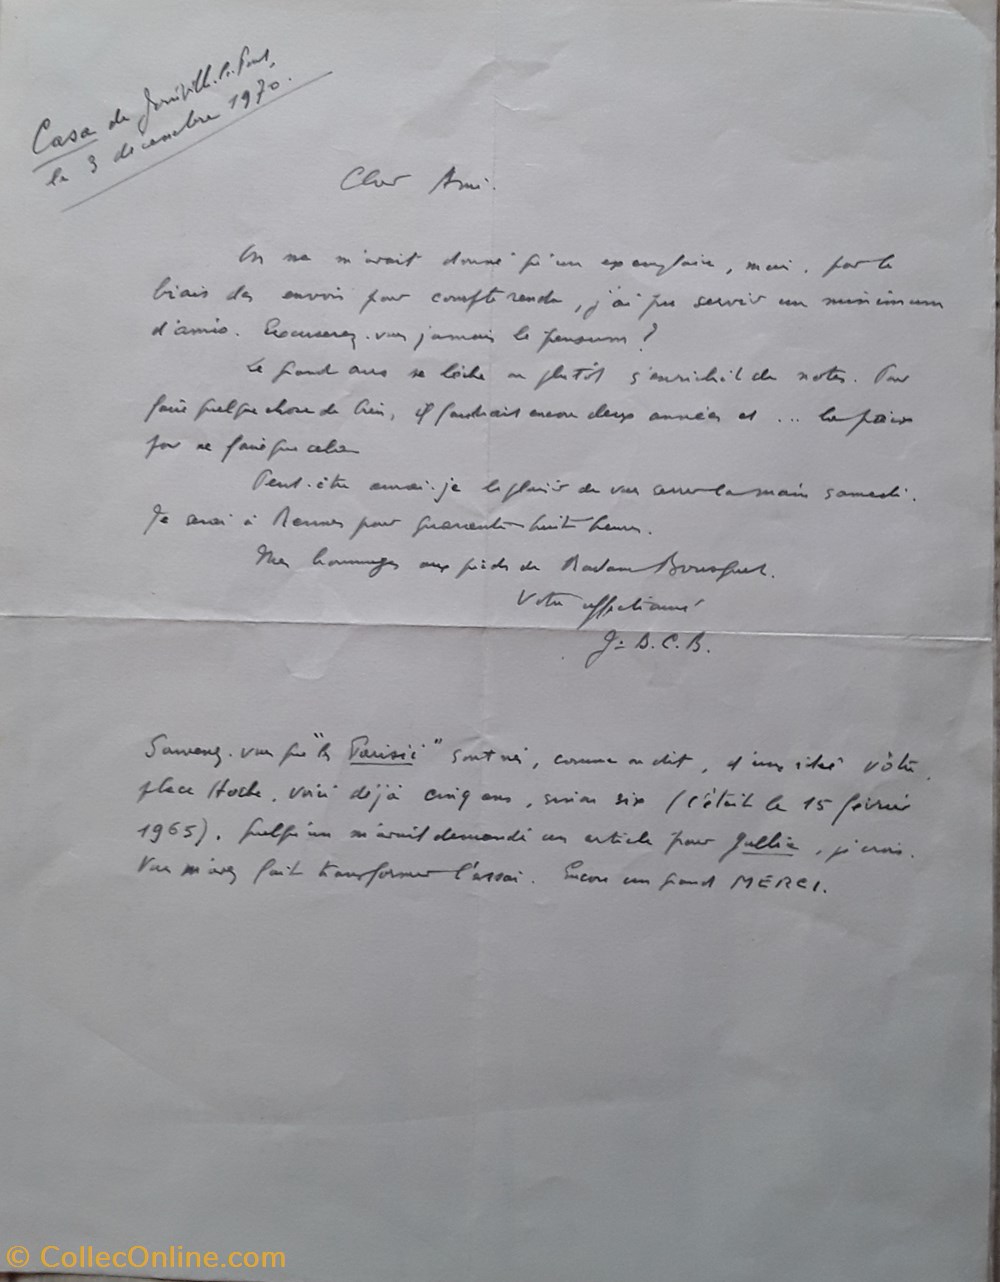 Casa de Joinville-le-Pont,
le 3 décembre 1970.
Cher Ami.
On ne m'avait donné qu'un exemplaire, mais, par le
biais des envois pour compte rendu, j'ai pu servir un minimum
d'amis. Excuserez-vous jamais le pensum ?
Le grand ours se lèche ou plutôt s'enrichit de notes. Pour
faire quelque chose de bien, il faudrait encore deux années et ...
pour ne faire que cela
Peut-être aurai-je le plaisir de vous serrer la main samedi.
Je serai à Rennes pour quarante-huit heures.
Mes hommages aux pieds de Madame Bousquet.
Votre affectionné
J-B. C. B.
Savez-vous que "les Parisii" sont nés, comme on dit, d'une idée vôtre,
place Hoche, voici déjà cinq ans, sinon six (c'était le 15 février
1965). Quelqu'un m'avait demandé un article pour Gallia, je crois.
Vous m'avez fait transformer l'essai. Encore un grand MERCI.
© CollecOnline.com